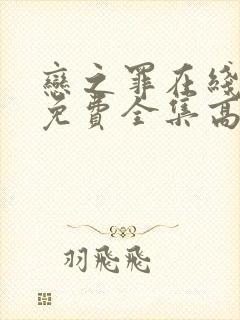 戀之罪在綫
免費全集高
羽飛飛